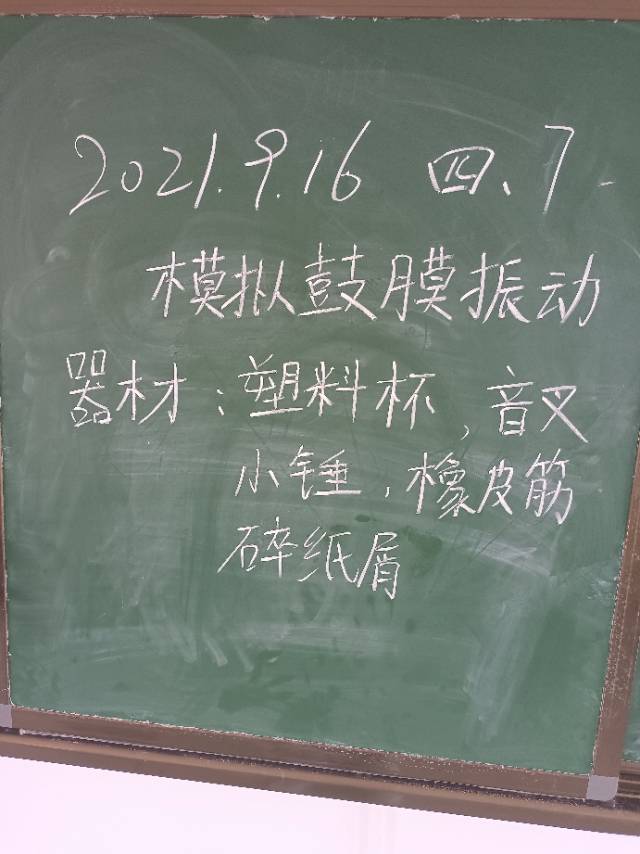 2021.9.16 四、7
模拟鼓膜振动
器材：塑料杯，音叉
小锤，橡皮筋
碎纸屑